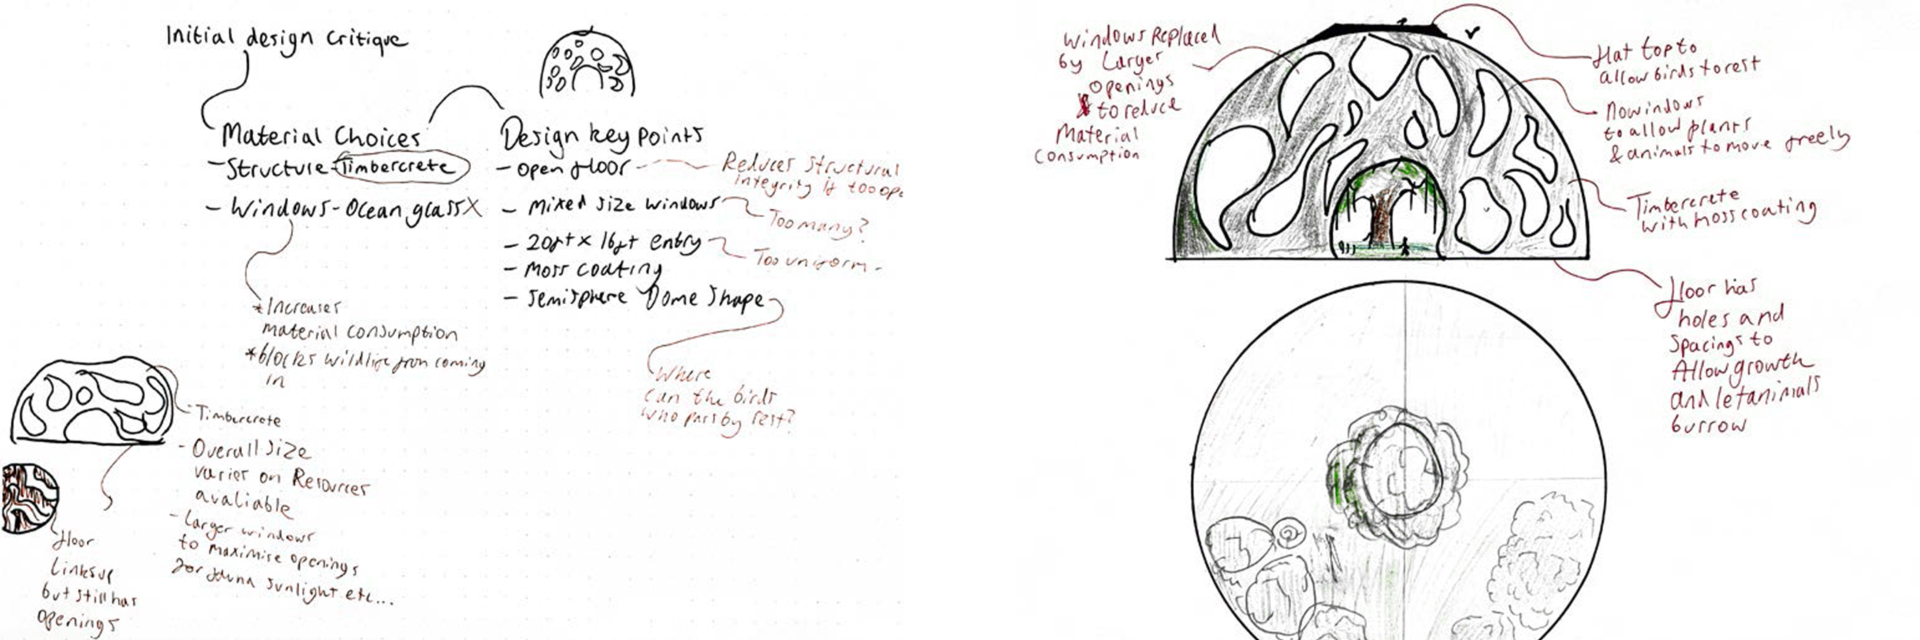 Initial design critique
Material Choices
- Structure - Timbercrete
- Windows - Ocean glass X
* Increases
material consumption
* blocks wildlife from coming
in
Design key points
- Open floor
Reduces structural
integrity if too ope
- Mixed size windows
Too many?
- 20ft x 16ft entry
Too uniform -
- Moss coating
- Semisphere Dome shape
Where
can the birds
who pass by rest?
Timbercrete
- Overall size
varies on Resources
avaliable
- larger windows
to maximise openings
for fauna sunlight etc...
floor
links up
but still has
openings
windows Replaced
by Larger
openings
to reduce
Material
Consumption
flat top to
allow birds to rest
No windows
to allow plants
& animals to move freely
Timbercrete
with moss coating
floor has
holes and
spacings to
Allow growth
and let animals
burrow